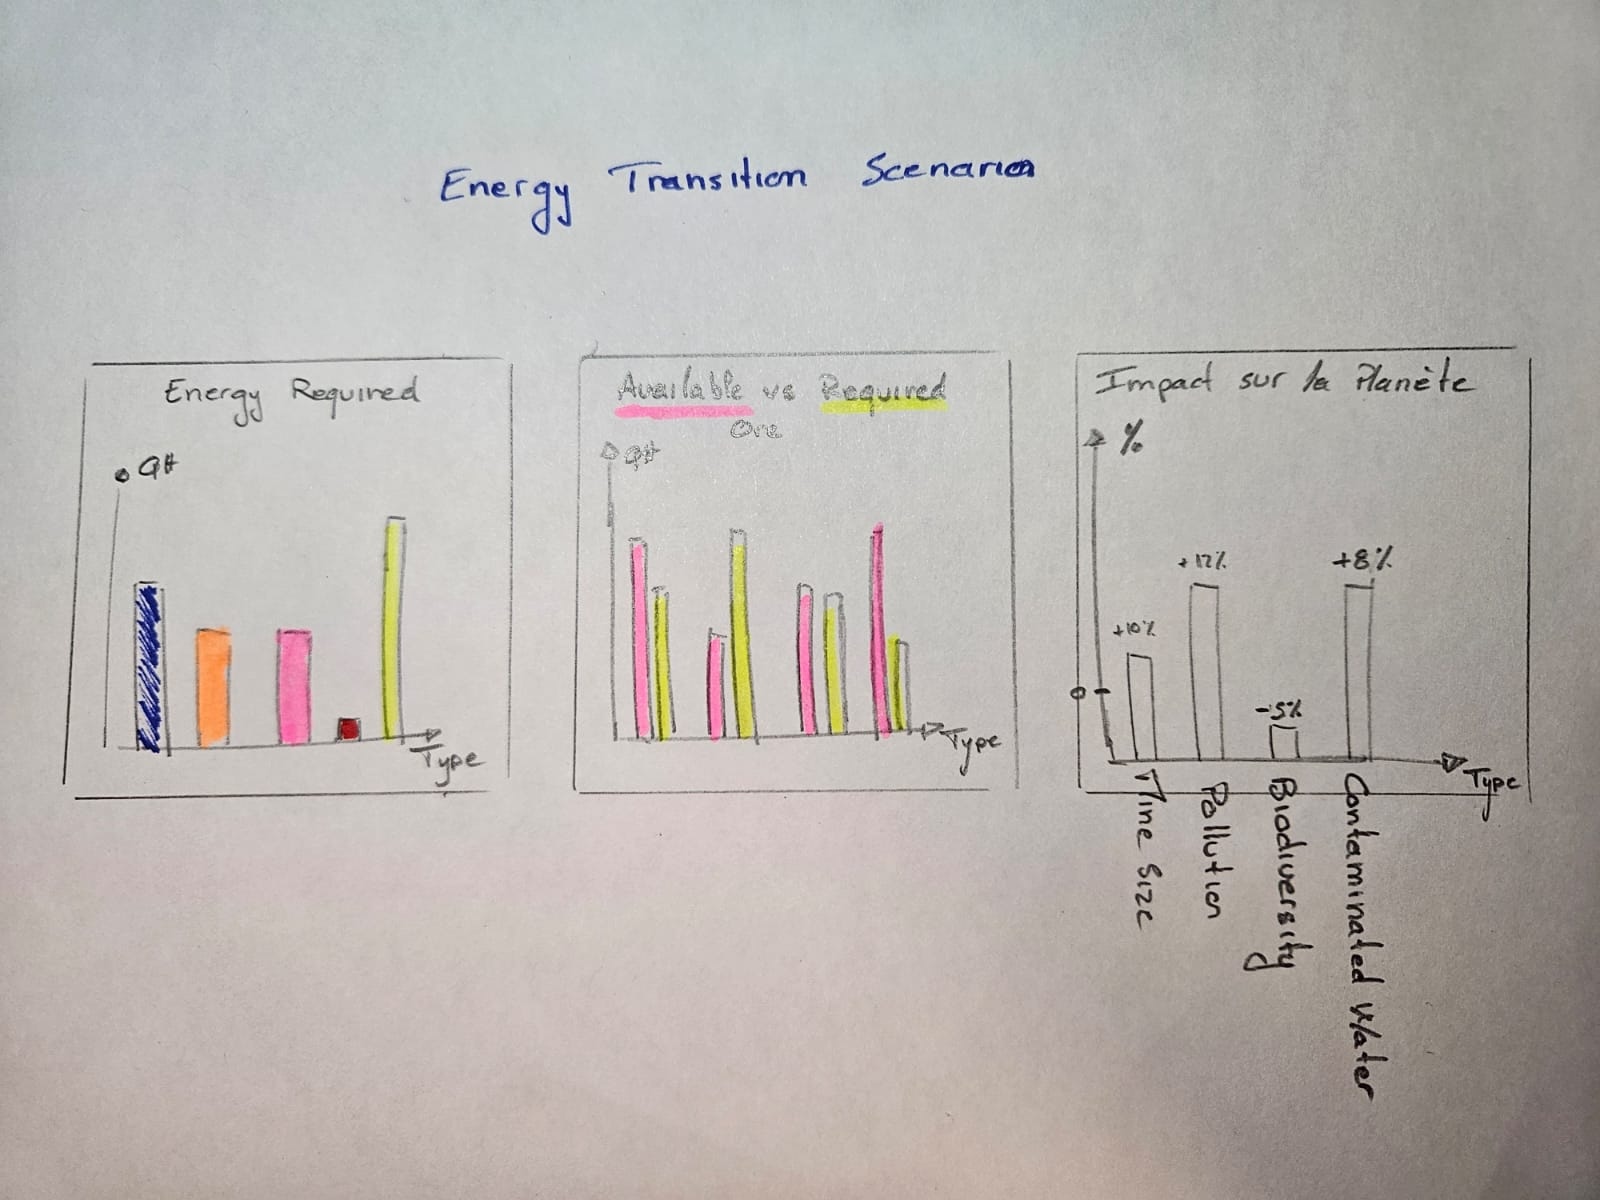 Energy Transition Scenarios
Energy Required
Qt
Type
Available vs Required
Ore
Qt
Type
Impact sur la Planète
%
+10%
+12%
-5%
+8%
0
Type
Mine Size
Pollution
Biodiversity
Contaminated Water